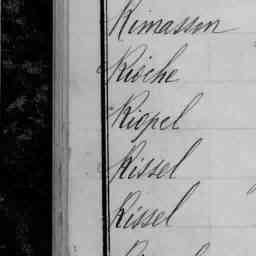 Rimasson
Rioche
Riepel
Rissel
Rissel